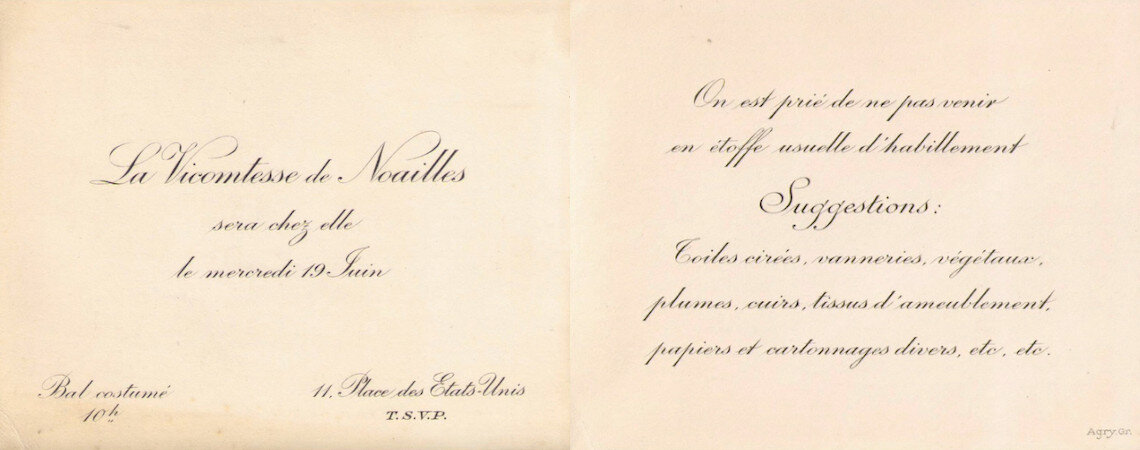 La Vicomtesse de Noailles
sera chez elle
le mercredi 19 Juin
Bal costumé
10h
11, Place des Etats-Unis
T.S.V.P.
On est prié de ne pas venir
en étoffe usuelle d'habillement
Suggestions:
Toiles cirées, vanneries, végétaux,
plumes, cuirs, tissus d'ameublement,
papiers et cartonnages divers, etc, etc.
Agry.Gr.